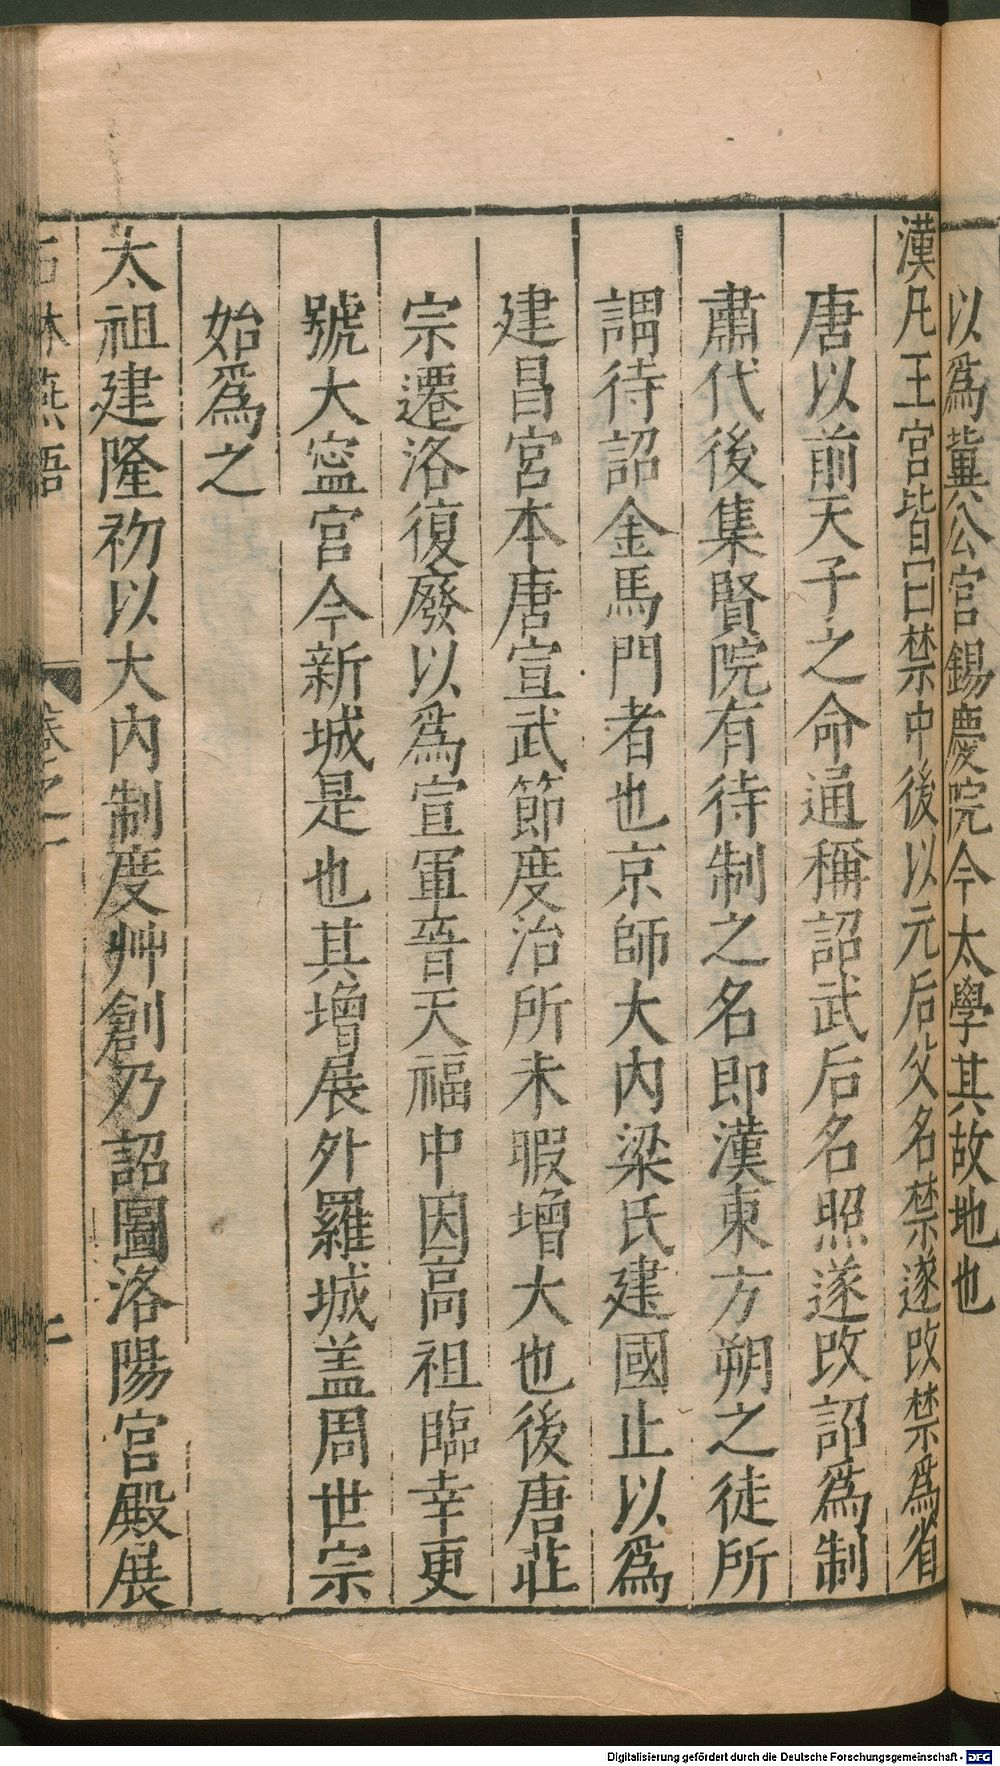 以爲冀公宫錫慶院今太學其故地也
漢凡王宫皆曰禁中後以元后父名禁遂改禁爲省
唐以前天子之命通稱詔武后名照遂改詔爲制
肅代後集賢院有待制之名即漢東方朔之徒所
謂待詔金馬門者也京師大内梁氏建國止以爲
建昌宫本唐宣武節度治所未暇增大也後唐莊
宗遷洛復廢以爲宣軍晉天福中因高祖臨幸更
號大寧宫今新城是也其增展外羅城盖周世宗
始爲之
太祖建隆初以大内制度艸創乃詔圖洛陽宫殿展
石林燕語
卷之一
Digitalisierung gefördert durch die Deutsche Forschungsgemeinschaft - DFG